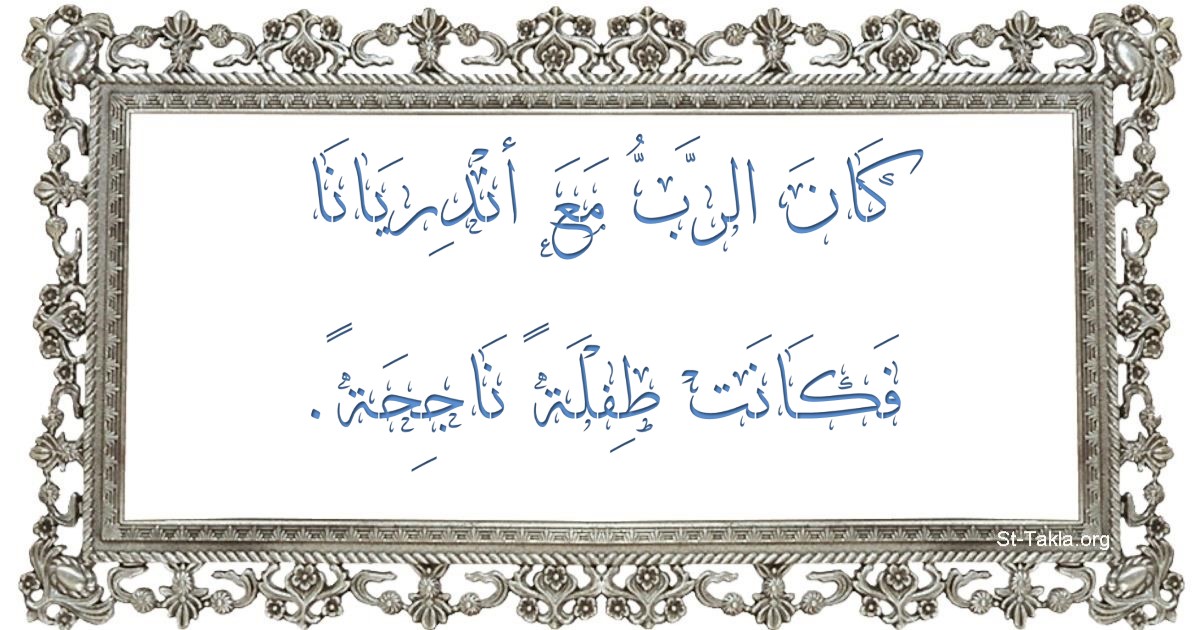 كَانَ الرَّبُّ مَعَ أنْدِريَانَا
فَكَانَتْ طِفِلْةًَ نَاجِحَةً.
St-Takla.org